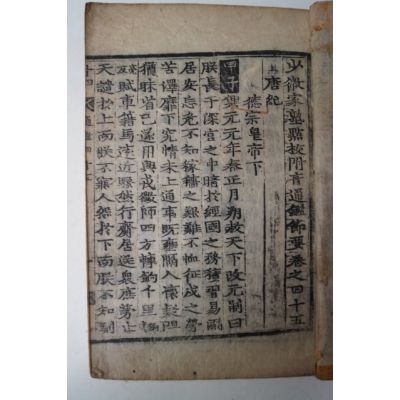 少微家塾點校附音通鑑節要卷之四十五
唐紀
德宗皇帝下
甲子興元元年春正月朔赦天下改元制曰
朕長于深宮之中暗於經國之務積習易溺
居安忘危不知稼穡之艱難不恤征戍之勞
苦澤靡下究情未上通事旣壅隔人懷疑阻
猶昧省己遂用興戎徵師四方轉餉千里
賦車籍馬遠近騷然行齎居送衆庶勞止
天譴於上而朕不寤人怨於下而朕不知馴
通鑑四十五